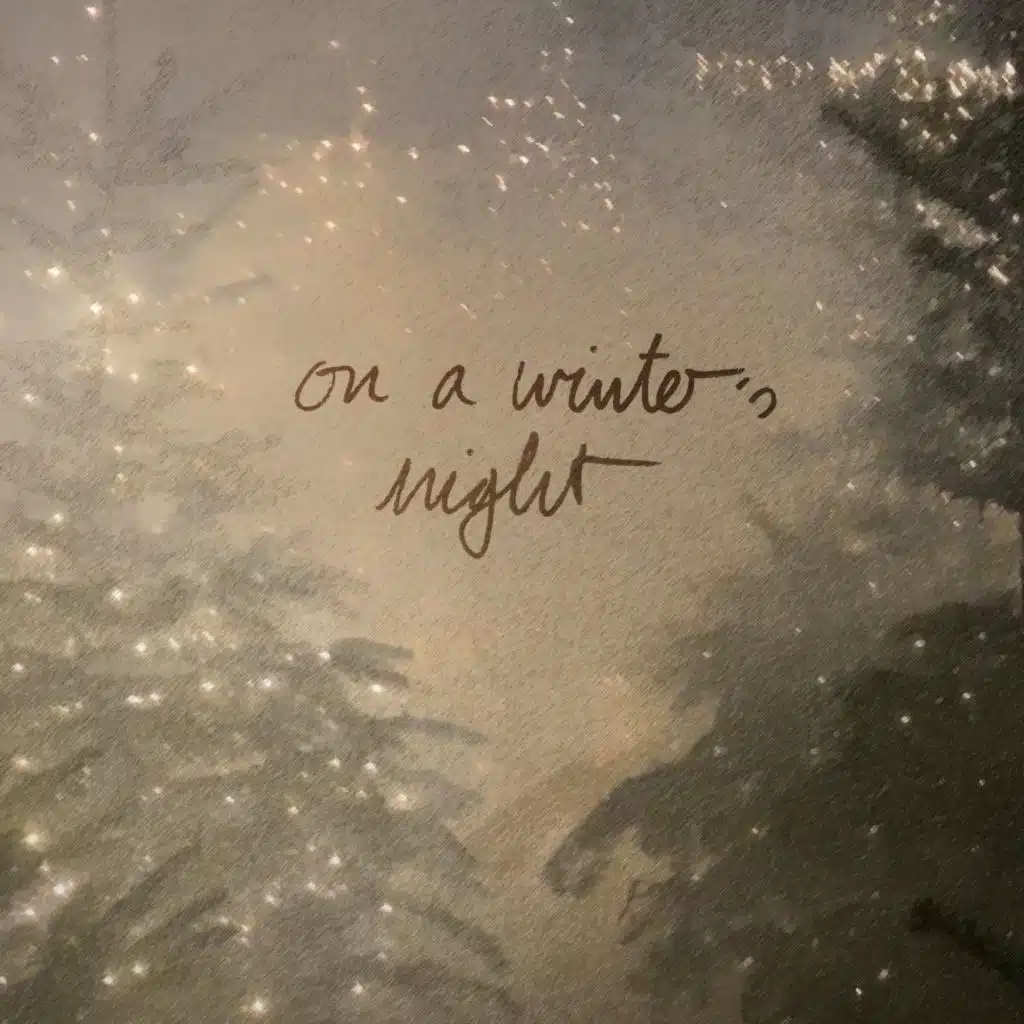 on a winter's
night